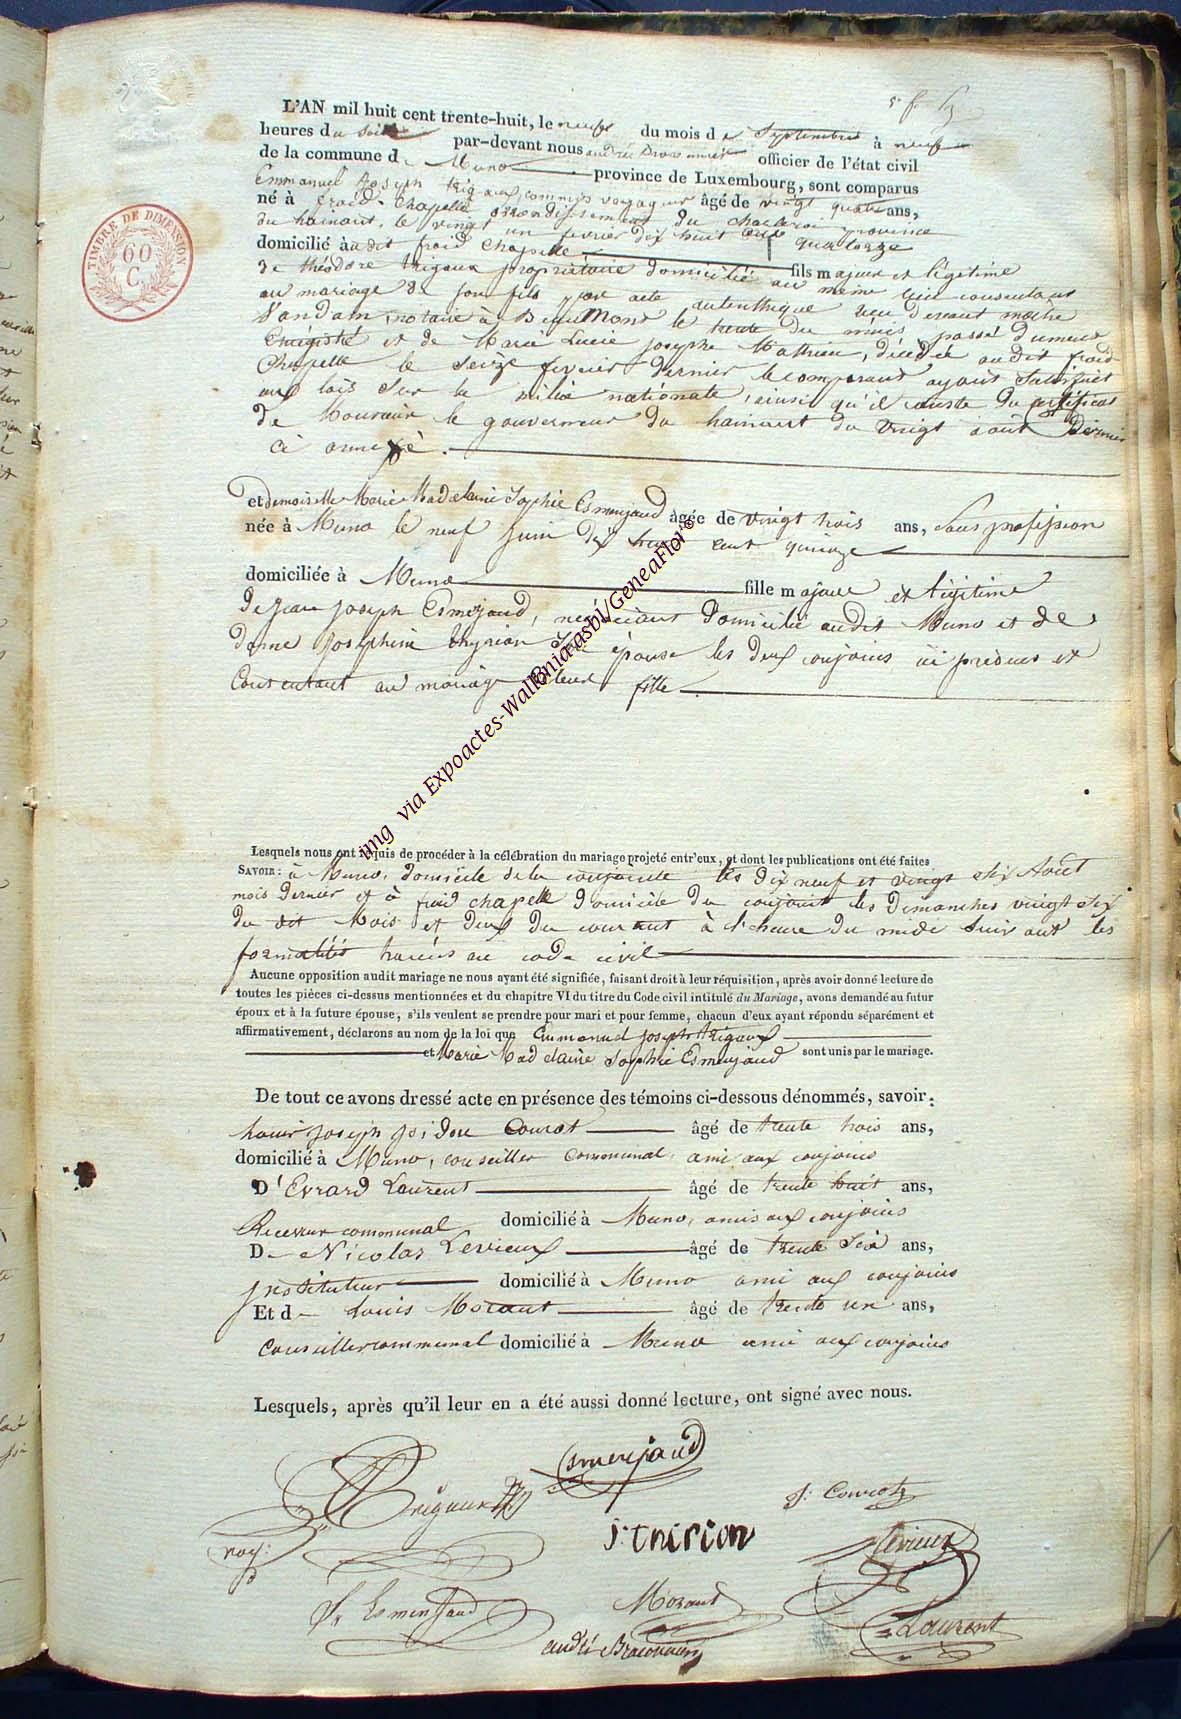 TIMBRE DE DIMENSION
60
C.
L'AN mil huit cent trente-huit, le neuf du mois de Septembre à neuf
heures du soir par-devant nous andré Braconnier officier de l'état civil
de la commune de Muno province de Luxembourg, sont comparus
Emmanuel Joseph trigaux commis voyageur âgé de vingt quatre ans,
né à froid-Chapelle arrondissement du charleroi province
du hainaut, le vingt un fevrier dix huit cent quatorze
domicilié audit froid Chapelle fils majeur et légitime
de théodore trigaux propriétaire domicilié au même lieu consentant
au mariage de son fils par acte autenthique reçu devant maître
Vandam, notaire à Beaumont le trente du mois passé dument
Enrégistré et de Marie Lucie josephe Mathieu, décédée audit froid
Chapelle le Seize fevrier dernier le comparant ayant Satisfait
aux lois Sur la milice nationale, ainsi qu'il conste du certificat
de Monsieur le gouverneur du hainaut du vingt août dernier
ci annexé.
et demoiselle Marie Madelaine Sophie Esmenjaud âgée de vingt trois ans, Sans profession
née à Muno le neuf juin dix huit cent quinze
domiciliée à Muno fille majeure et légitime
de jean joseph Esmenjaud, négociant domicilié audit Muno et de
dame josephine thyrion Son épouse les deux conjoins ici présens et
Consentant au mariage de leur fille
img via Expoactes-Wallonia-asbl/GeneaFloi©
Lesquels nous ont requis de procéder à la célébration du mariage projeté entr'eux, et dont les publications ont été faites
SAVOIR: à Muno, domicile de la conjointe les dix neuf et vingt six Août
mois dernier et à froid chapelle domicile du conjoint les dimanches vingt six
du dit Mois et deux du courant à l'heure du midi Suivant les
formalités tracées au code civil
Aucune opposition audit mariage ne nous ayant été signifiée, faisant droit à leur réquisition, après avoir donné lecture de
toutes les pièces ci-dessus mentionnées et du chapitre VI du titre du Code civil intitulé du Mariage, avons demandé au futur
époux et à la future épouse, s'ils veulent se prendre pour mari et pour femme, chacun d'eux ayant répondu séparément et
affirmativement, déclarons au nom de la loi que Emmanuel joseph trigaux
et Marie Madelaine Sophie Esmenjaud sont unis par le mariage.
De tout ce avons dressé acte en présence des témoins ci-dessous dénommés, savoir:
joseph jsidore Courot âgé de trente trois ans,
domicilié à Muno, conseiller Communal, ami aux conjoins
D'Evrard Laurent âgé de trente huit ans,
Receveur communal domicilié à Muno, amis aux conjoins
De Nicolas Levieux âgé de trente Six ans,
jnstituteur domicilié à Muno ami aux conjoins
Et de Louis Morant âgé de trente un ans,
Conseiller communal domicilié à Muno ami aux conjoins
Lesquels, après qu'il leur en a été aussi donné lecture, ont signé avec nous.
Esmenjaud
Trigaux
J: Courot
j: thirion
Levieux
Esmenjaud
Morant
Laurent
andré Braconnier